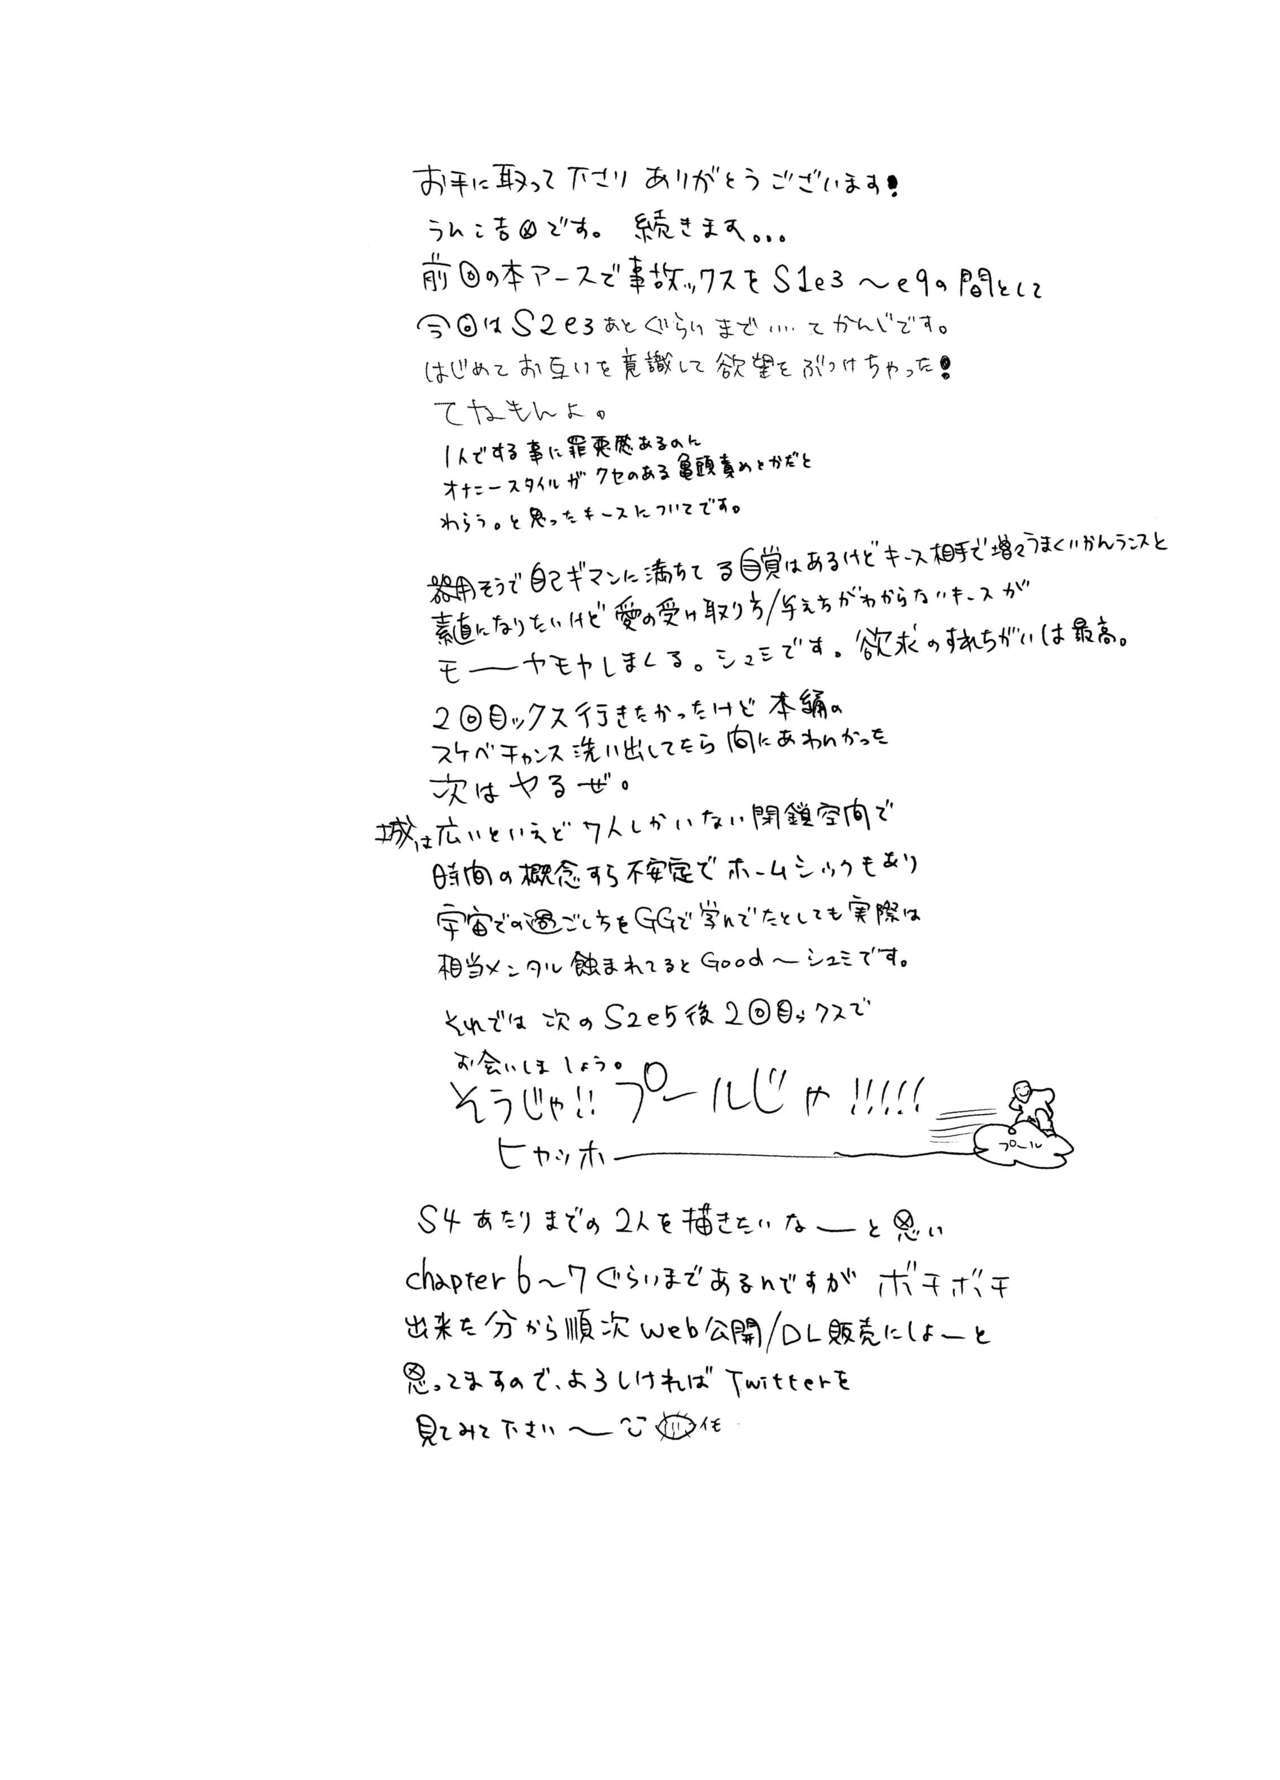 お手に取って下さり ありがとうございます!
うんこ吉田です。 続きます...
前回の本アースで事故ックスを S1e3 〜e9の間として
今回は S2e3 あとぐらいまで....てかんじです。
はじめてお互いを意識して欲望をぶつけちゃった!
てなもんよ。
1人でする事に罪悪感あるのん
オナニースタイルが クセのある亀頭責めとかだと
わらう。と思ったキースについてです。
器用そうで自己ギマンに満ちてる自覚はあるけどキース相手で増々うまくいかんランスと
素直になりたいけど愛の受け取り方/与え方がわからないキースが
モーヤモヤしまくる。シュミです。欲求のすれちがいは最高。
2回目ックス行きたかったけど 本編の
スケベチャンス洗い出してたら 間にあわんかった
次はヤるぜ。
城は広いといえど 7人しかいない閉鎖空間で
時間の概念すら不安定でホームシックもあり
宇宙での過ごし方をGGで学んでたとしても実際は
相当メンタル蝕まれてるとGood〜シュミです。
それでは 次の S2e5後 2回目ックスで
お会いしましょう。
そうじゃ!! プールじゃ!!!!!
ヒャッホー
プール
S4 あたりまでの 2人を描きたいなーと思い
chapter 6〜7ぐらいまであるんですが ボチボチ
出来た分から順次 web公開/DL販売にしよーと
思ってますので、よろしければ Twitterを
見てみて下さい〜